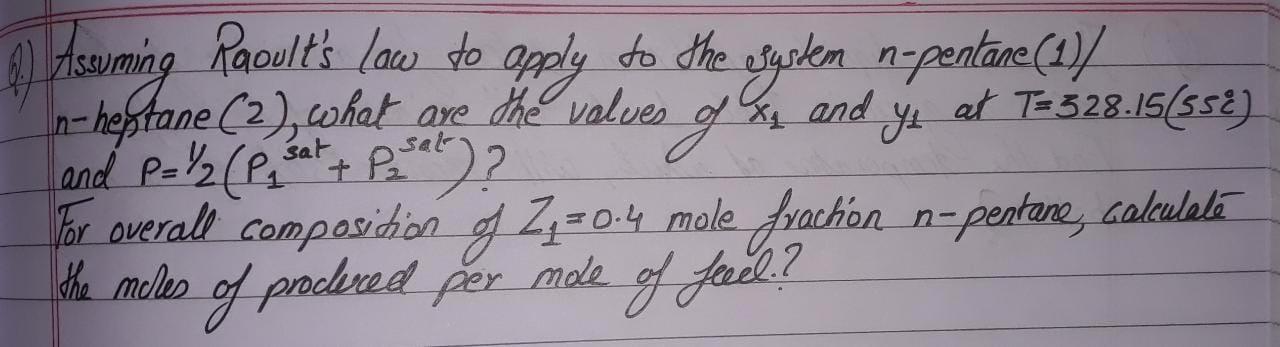 Q.) Assuming Raoult's law to apply to the system n-pentane(1)/
n-heptane(2), what are the values of x₁ and y₁ at T=328.15(55℃)
and P=½(P₁ˢᵃᵗ + P₂ˢᵃᵗ)?
For overall composition of Z₁=0.4 mole fraction n-pentane, calculate
the moles of produced per mole of feed.?